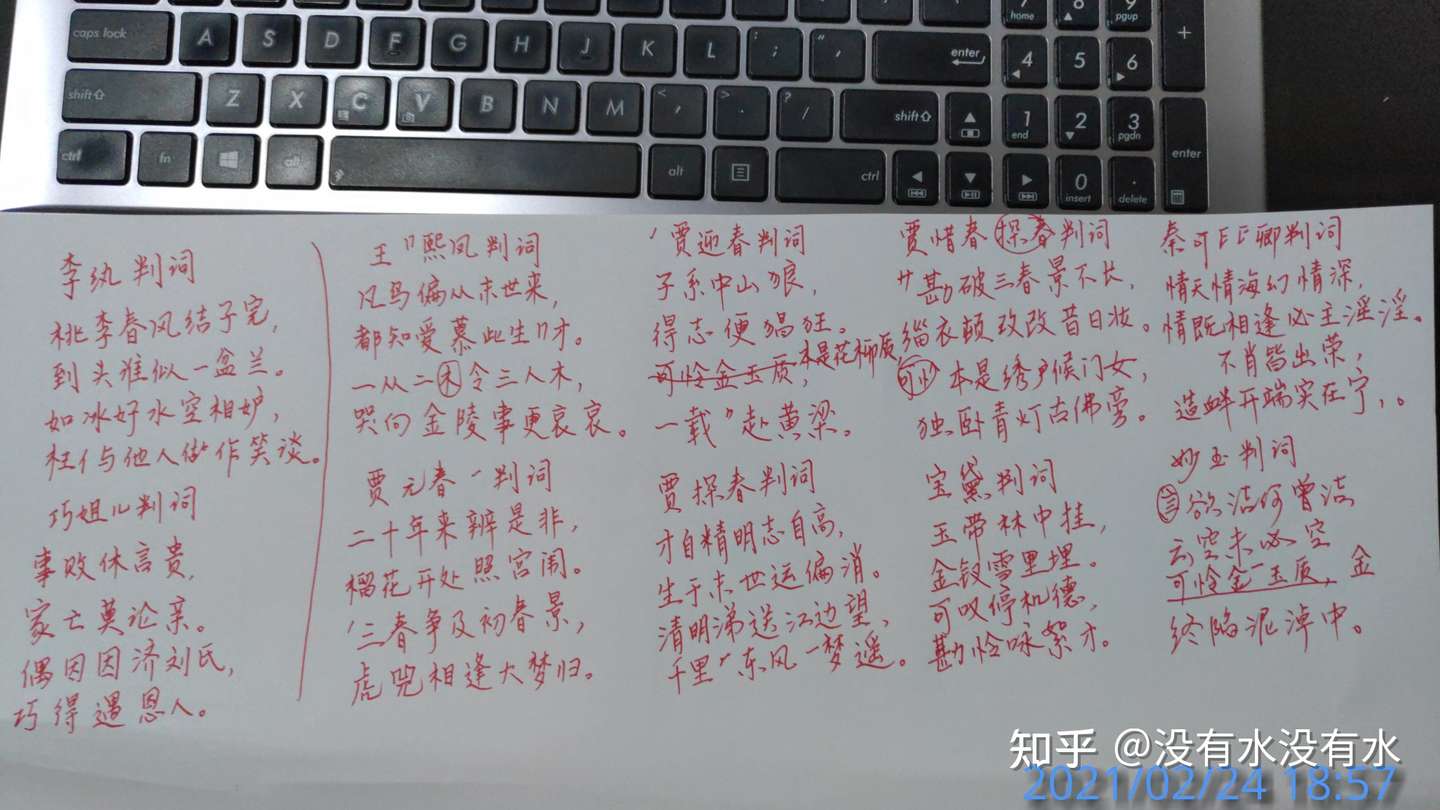 home
pgup
caps lock
A S D F G H J K L
enter
4 5 6
+
shift
Z X C V B N M
shift
1 2 3
end
pgdn
ctrl fn alt alt ctrl
0
insert
delete
enter
李纨判词
桃李春风结子完，
到头谁似一盆兰。
如冰好水空相妒，
枉与他人作笑谈。
巧姐儿判词
事败休言贵，
家亡莫论亲。
偶因因济刘氏，
巧得遇恩人。
王熙凤判词
凡鸟偏从末世来，
都知爱慕此生才。
一从二令三人木，
哭向金陵事更哀哀。
贾元春判词
二十年来辨是非，
榴花开处照宫闱。
三春争及初春景，
虎兕相逢大梦归。
贾迎春判词
子系中山狼，
得志便猖狂。
可怜金玉质，本是花柳质
一载赴黄粱。
贾探春判词
才自精明志自高，
生于末世运偏消。
清明涕送江边望，
千里东风一梦遥。
贾惜春探春判词
勘破三春景不长，
缁衣顿改改昔日妆。
可怜本是绣户候门女，
独卧青灯古佛旁。
宝黛判词
玉带林中挂，
金钗雪里埋。
可叹停机德，
勘怜咏絮才。
秦可卿判词
情天情海幻情深，
情既相逢必主淫淫。
不肖皆出荣，
造衅开端实在宁。
妙玉判词
欲洁何曾洁
云空未必空
可怜金玉质，金
终陷泥淖中。
知乎 @没有水没有水
2021/02/24 18:57